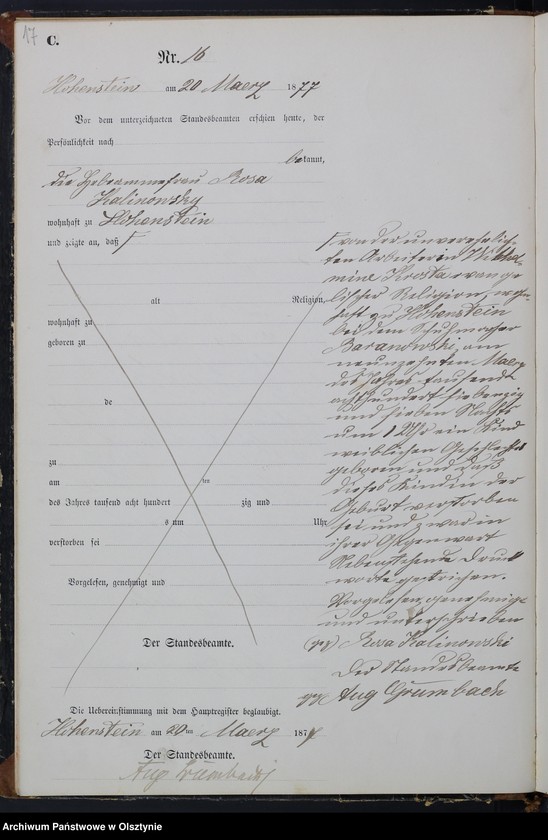 17
C.
Nr. 16
Hohenstein am 20 Maerz 1877
Vor dem unterzeichneten Standesbeamten erschien heute, der
Persönlichkeit nach
bekannt,
die Hebeammefrau Rosa
Kalinowsky
wohnhaft zu Hohenstein
und zeigte an, daß Γ
Γ von der unverehelich-
ten Arbeiterin Wilhel-
mine Krosta evange-
lischer Religion, wohn-
haft zu Hohenstein
bei dem Schuhmacher
Baranowski, am
neunzehnten Maerz
des Jahres tausend
achthundert siebenzig
und sieben Nachts
um 1 Uhr ein Kind
weiblichen Geschlechts
geboren und daß
dieses Kind in der
Geburt verstorben
sei und zwar in
ihrer Gegenwart
Nebenstehende Druck
worte gestrichen.
Vorgelesen, genehmigt
und unterschrieben
(gez) Rosa Kalinowski
Der Standesbeamte
gez Aug Grumbach
alt Religion,
wohnhaft zu
geboren zu
de
zu
am ten
des Jahres tausend acht hundert zig und
s um Uhr
verstorben sei
Vorgelesen, genehmigt und
Der Standesbeamte.
Die Uebereinstimmung mit dem Hauptregister beglaubigt.
Hohenstein am 20ten Maerz 1877
Der Standesbeamte.
Aug Grumbach
Archiwum Państwowe w Olsztynie